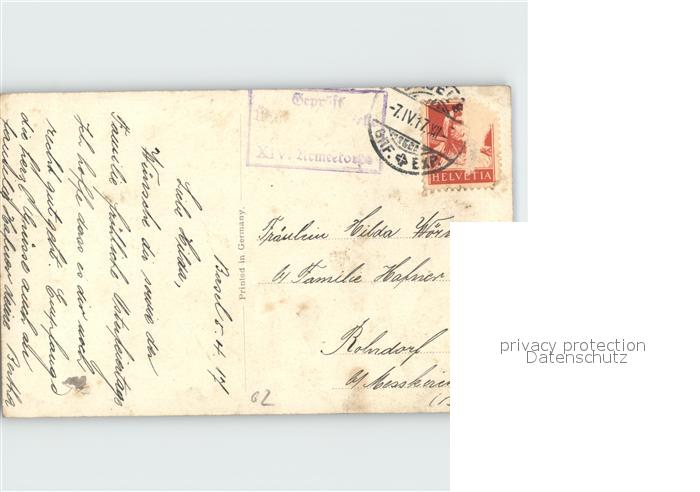 Geprüft
XIV. Armeekorps
-7.IV.17.
BRF. EXP.
HELVETIA
Printed in Germany.
Basel 5. 4. 17
Liebe Hilda,
Wünsche dir sowie der
Familie fröhliche Osterfeiertage
Ich hoffe dass es dir noch
recht gut geht. Empfange
die herzl. Grüsse auch an
Fräulein Hilda
b/ Familie Hafner
Rohrdorf
b/ Messkirch
62
privacy protection
Datenschutz